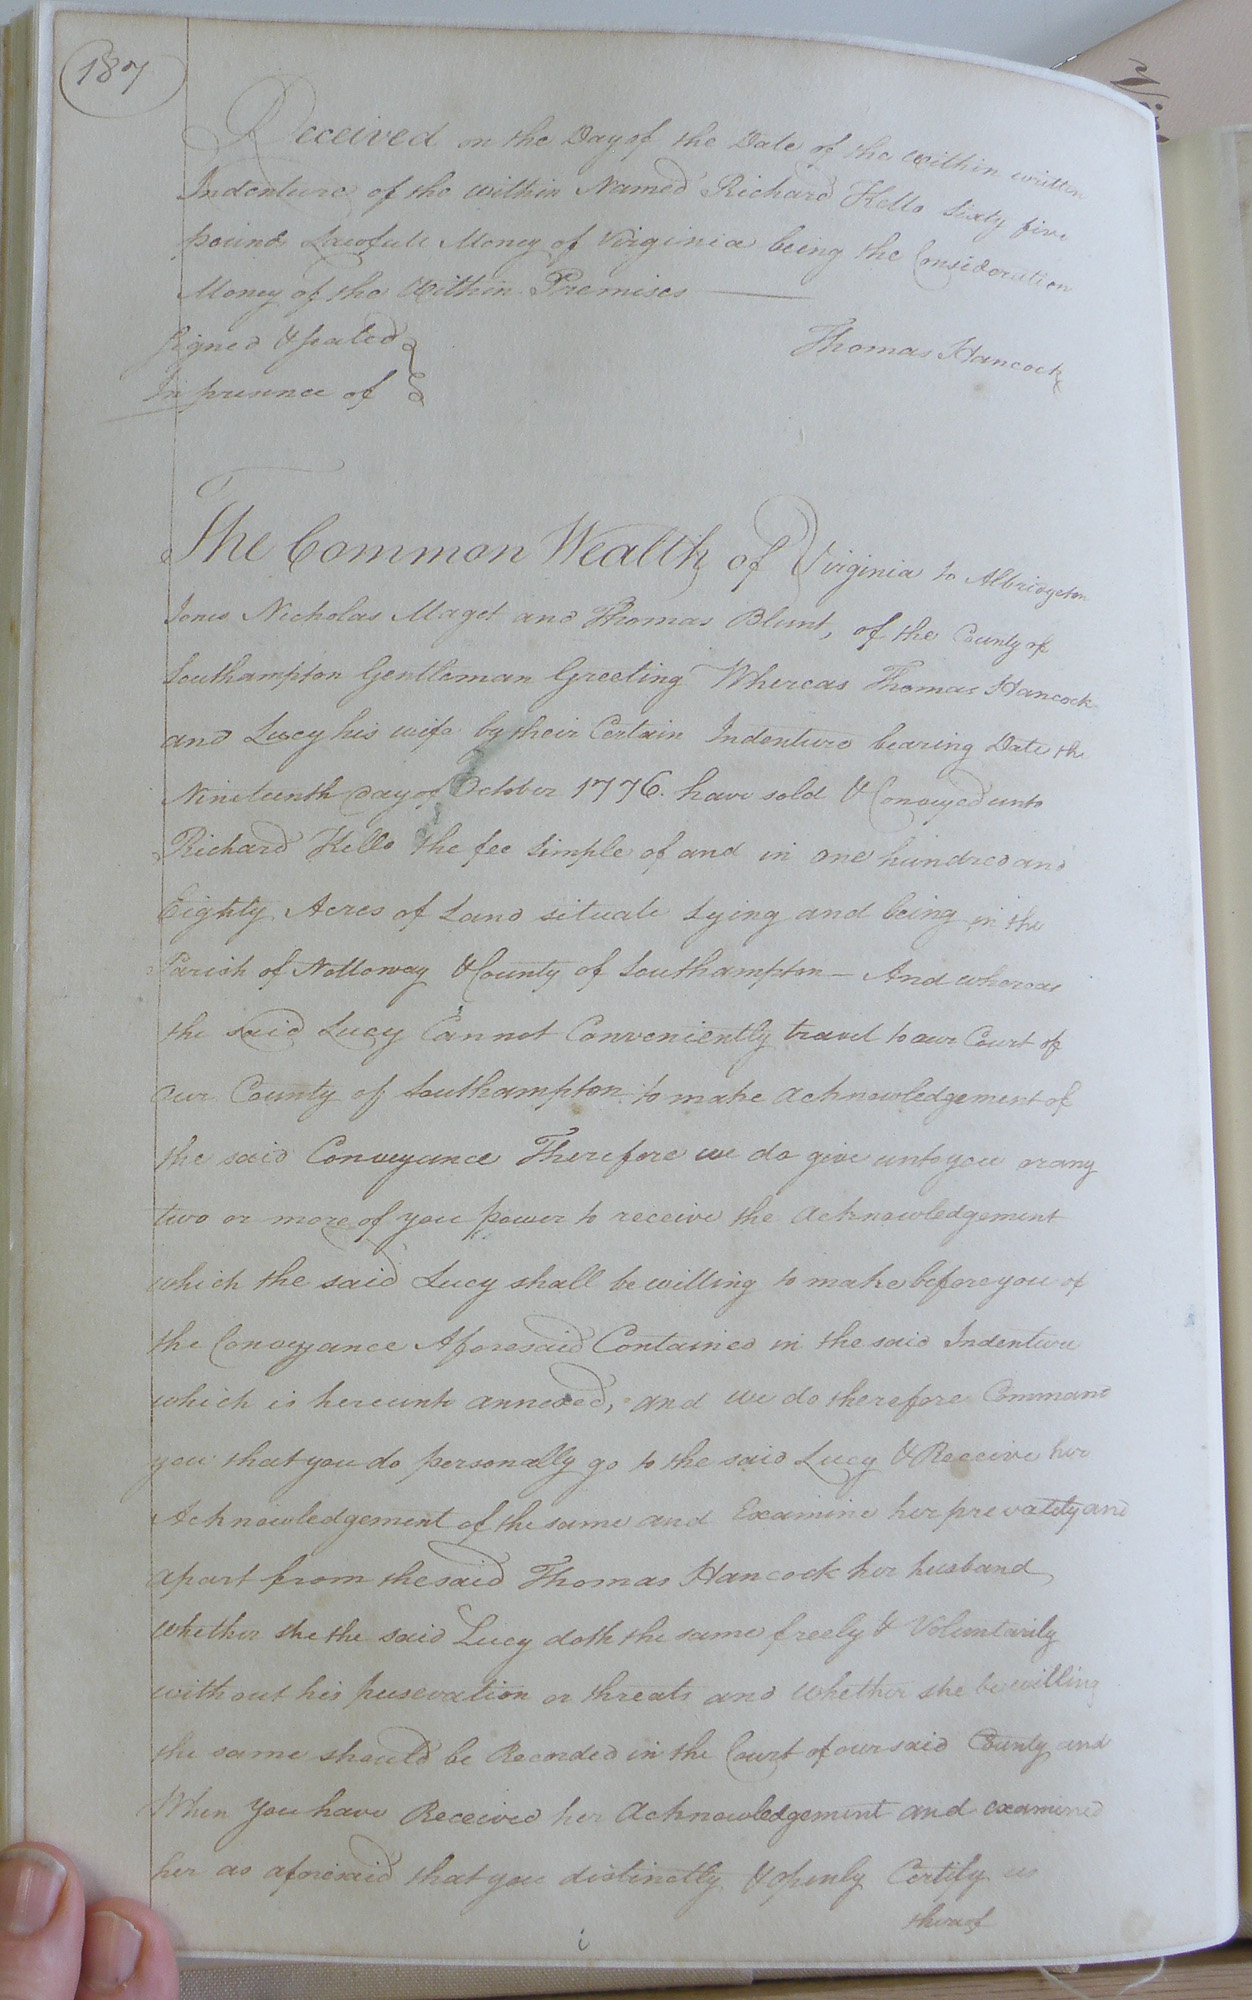 187
Received on the Day of the Date of the within written
Indenture of the within Named Richard Kello Sixty five
pounds Lawfull Money of Virginia being the Consideration
Money of the Within Premises
Signed & sealed
In presence of
Thomas Hancock
The Common Wealth of Virginia to Albridgton
Jones Nicholas Maget and Thomas Blunt, of the County of
Southampton Gentleman Greeting Whereas Thomas Hancock
and Lucy his wife by their Certain Indenture bearing Date the
Nineteenth day of October 1776. have sold & Conveyed unto
Richard Kello the fee Simple of and in one hundred and
Eighty Acres of Land situate Lying and being in the
Parish of Nottoway & County of Southampton - And whereas
the said Lucy Cannot Conveniently travel to our Court of
our County of Southampton to make acknowledgement of
the said Conveyance Therefore we do give unto you or any
two or more of you power to receive the acknowledgement
which the said Lucy shall be willing to make before you of
the Conveyance Aforesaid Contained in the said Indenture
which is hereunto annexed, and we do therefore Command
you that you do personally go to the said Lucy & Receive her
Acknowledgement of the same and Examine her prevately and
apart from the said Thomas Hancock her husband
whether she the said Lucy doth the same freely & Voluntarily
without his or threats and whether she be willing
the same should be Recorded in the Court of our said County and
When you have Received her Acknowledgement and examined
her as aforesaid that you distinctly & openly Certify us
thereof